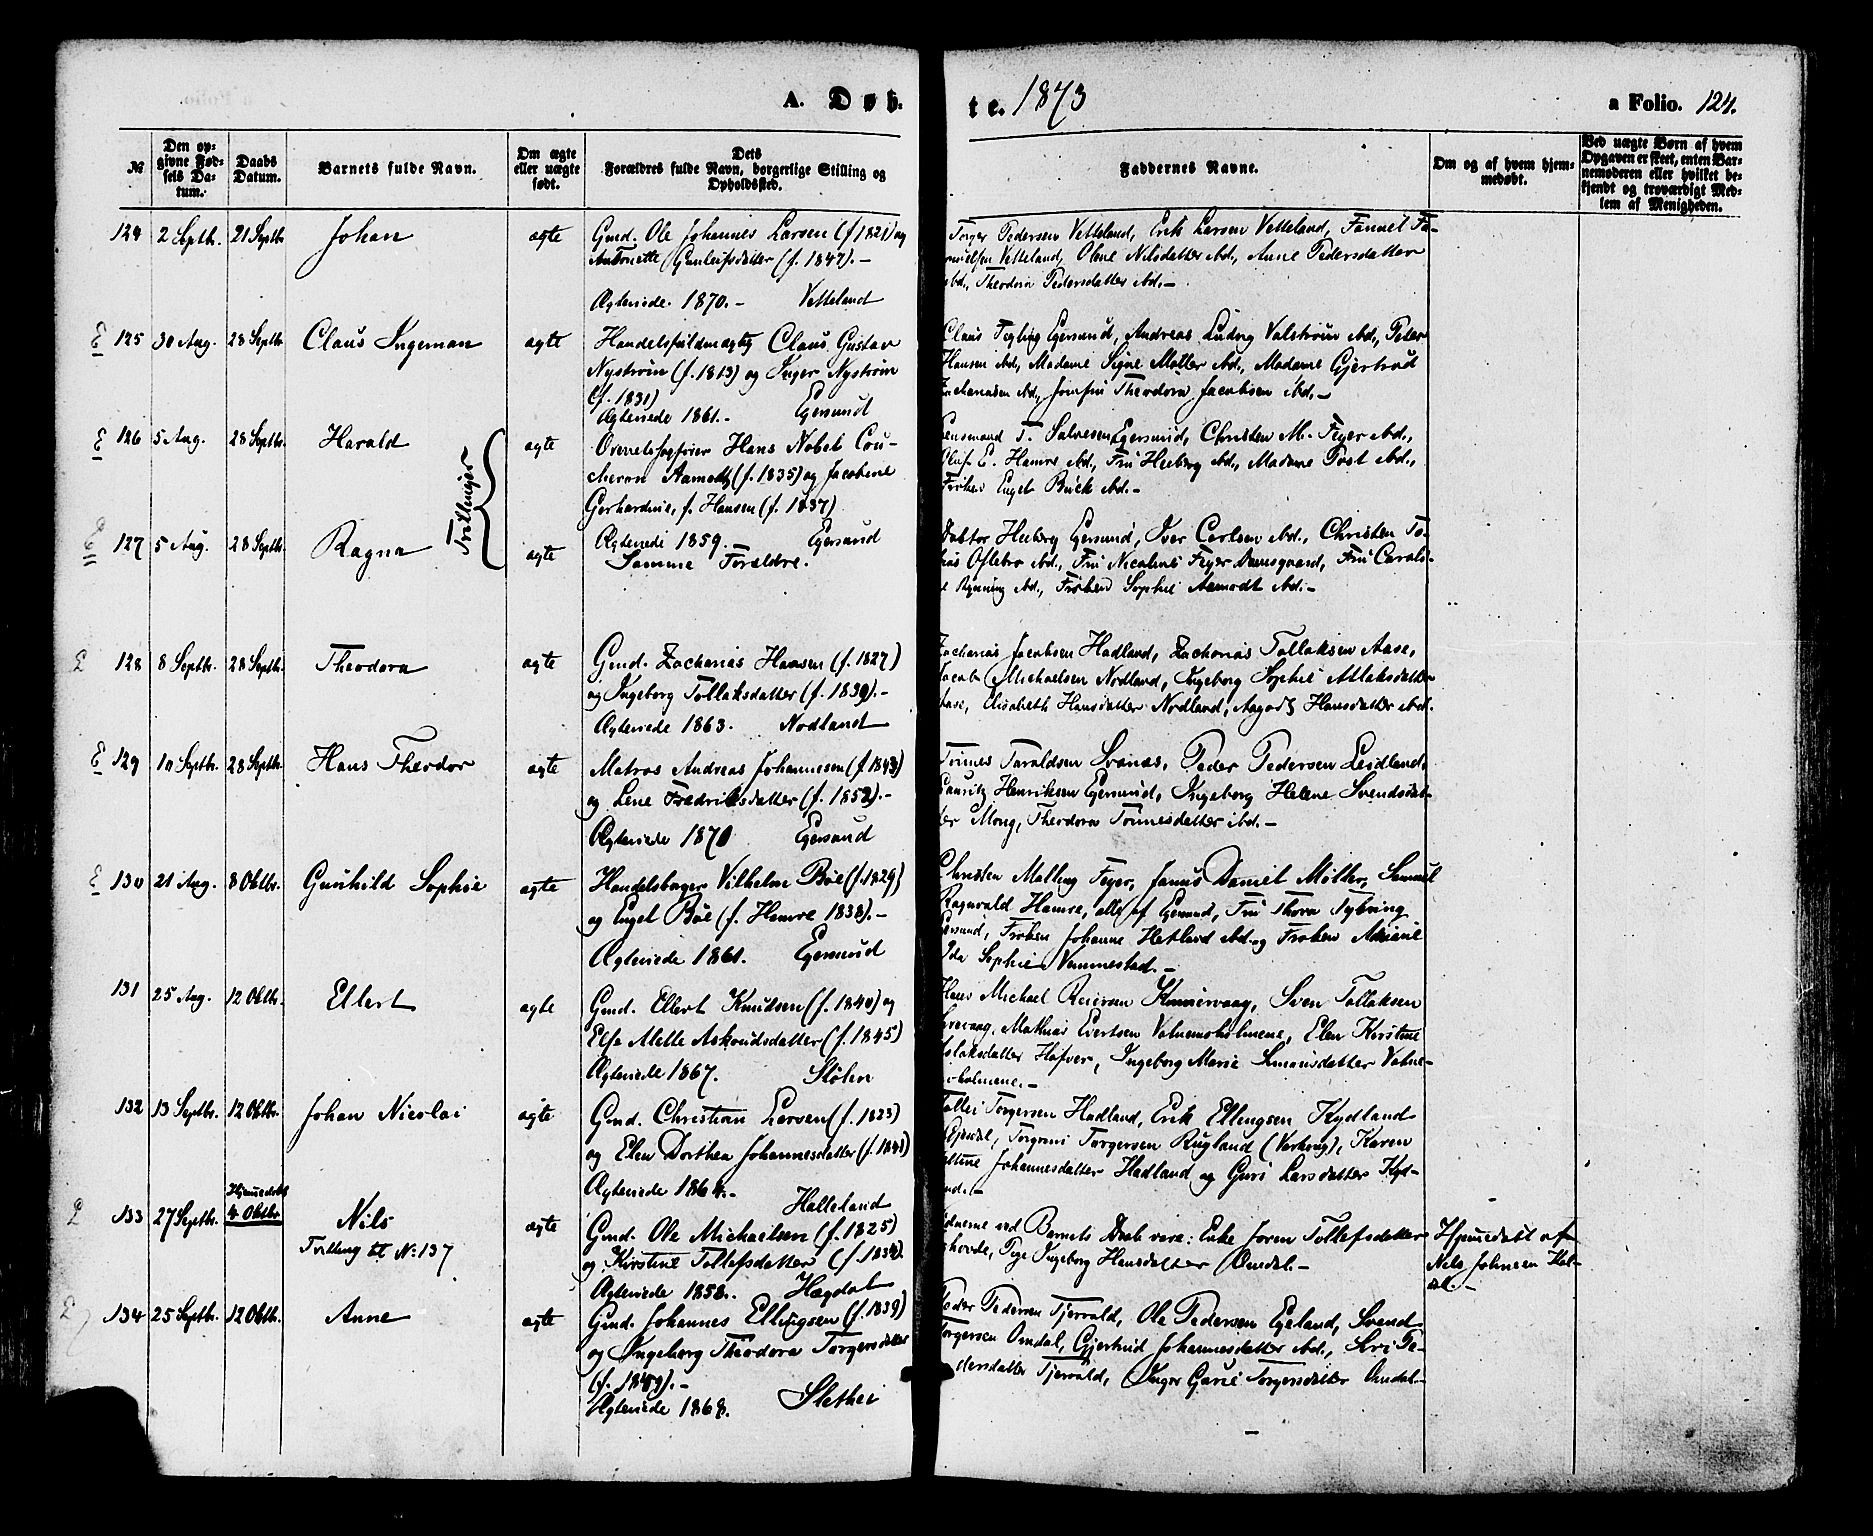 A. Døb.
te. 1873
a Folio. 124.
№
Den op-
givne Fød-
sels Da-
tum.
Daabs
Datum.
Barnets fulde Navn.
Om ægte
eller uægte
født.
Dets
Forældres fulde Navn, borgerlige Stilling og
Opholdssted.
Faddernes Navne.
Om og af hvem hjem-
medøbt.
Ved uægte Børn af hvem
Opgaven er skeet, enten Bar-
nemoderen eller hvilket be-
kjendt og troværdigt Med-
lem af Menigheden.
124 2 Septbr. 21 Septbr Johan ægte Gmd. Ole Johannes Larsen (f 1821) og
Antonette Gunleifsdatter (f. 1847). -
Ægteviede 1870. - Vetteland
Torger Pedersen Vetteland, Erik Larsen Vetteland,
Vetteland, Olene Nilsdatter ibd., Anne Pedersdatter
ibd., Theodora Pedersdatter ibd. -
E 125 30 Aug. 28 Septbr Claus Ingeman ægte Handelsfuldmægtig Claus Gustav
Nystrøm (f. 1813) og Inger Nystrøm
(f. 1831)
Ægteviede 1861. - Egersund
Claus Egersund, Andreas Ludvig Valstrøm ibd., Peder
Hansen ibd., Madame Signe Møller ibd., Madame Gjertrud
Zachariasen ibd., Jomfru Theodora Jacobsen ibd. -
E 126 5 Aug. 28 Septbr. Harald ægte Overretssagfører Hans Nobel Cou-
cheron Aamodt (f. 1835) og Jacobine
Gerhardine, f. Hansen (f. 1837)
Ægteviede 1859. Egersund
Tvillinger
Lensmand T. Salvesen Egersund, Christen M. Feyer ibd.,
Oluf E. Hamre ibd., Fru Heiberg ibd., Madame Post ibd.,
Frøken Engel Buck ibd. -
E 127 5 Aug. 28 Septbr Ragna ægte Samme Forældre.
Doktor Heiberg Egersund, Iver Carlsen ibd., Christen To-
bias Oftebro ibd., Fru Nicoline Feyer Damsgaard, Fru Caroli-
ne Rynning ibd., Frøken Sophie Aamodt ibd. -
E 128 8 Septbr. 28 Septbr. Theodora ægte Gmd. Zacharias Hansen (f. 1827)
og Ingeborg Tollaksdatter (f. 1839). -
Ægteviede 1863. Nodland
Zacharias Jacobsen Hadland, Zacharias Tollaksen Aase,
Jacob Michaelsen Nodland, Ingeborg Sophie Atlaksdatter
Aase, Elisabeth Hansdatter Nodland, Hansdatter ibd.
E 129 10 Septbr. 28 Septbr Hans Theodor ægte Matros Andreas Johannesen (f 1843)
og Lene Fredriksdatter (f. 1852). -
Ægteviede 1870 Egersund
Tønnes Taraldsen Svanæs, Peder Pedersen Leidland,
Lauritz Henriksen Egersund, Ingeborg Helene Svendsdat-
ter Mong, Theodora Tønnesdatter ibd. -
E 130 21 Aug. 8 Oktbr. Gunhild Sophie ægte Handelsborger Vilhelm Bøe (f. 1829)
og Engel Bøe (f. Hamre 1838). -
Ægteviede 1861. Egersund
Christen Malling Feyer, Janus Daniel Møller, Samuel
Ragnvald Hamre, alle af Egersund, Fru Thora Tybring
Egersund, Frøken Johanne Hetland ibd. og Frøken Adriane
Ida Sophie Vemmestad. -
131 25 Aug. 12 Oktbr. Ellert ægte Gmd. Ellert Knudsen (f. 1840) og
Elsa Malle Askouldsdatter (f. 1845)
Ægteviede 1867. Støhn
Hans Michael Reiersen Skurvevaag, Sven Tollaksen
Mathias Evertsen Vatnemsholmene, Elen Kirstine
Aslaksdatter Hafver, Ingeborg Marie Simonsdatter Vatne-
msholmene. -
132 13 Septbr. 12 Oktbr. Johan Nicolai ægte Gmd. Christian Larsen (f. 1823)
og Elen Dorthea Johannesdatter (f. 1841)
Ægteviede 1864. - Halleland
Tollei Torgersen Hadland, Erik Ellingsen Kydland
Torgersen Rugland (Varhoug), Karen
Johannesdatter Hadland og Guri Larsdatter Kyd-
land. -
E 133 27 Septbr. Hjemmedøbt
4 Oktbr Nils
Tvilling til N: 137 ægte Gmd. Ole Michaelsen (f. 1825)
og Kirstine Tollefsdatter (f. 1834)
Ægteviede 1858. Hægdal
Vidnerne ved Barnets Daab vare: Enke Joren Tollefsdatter
Pige Ingeborg Hansdatter Omdal. -
Hjemmedøbt af
Nils Johnsen Hæg-
dal. -
E 134 25 Septbr. 12 Oktbr. Anne ægte Gmd. Johannes Ellingsen (f. 1839)
og Ingeborg Theodora Torgersdatter
(f. 1849). -
Ægteviede 1868. Slethei
Peder Pedersen Tjervald, Ole Pedersen Egeland, Svend
Torgersen Omdal, Gjertrud Johannesdatter ibd., Siri Pe-
dersdatter Tjervald, Inger Gurie Torgersdatter Omdal. -